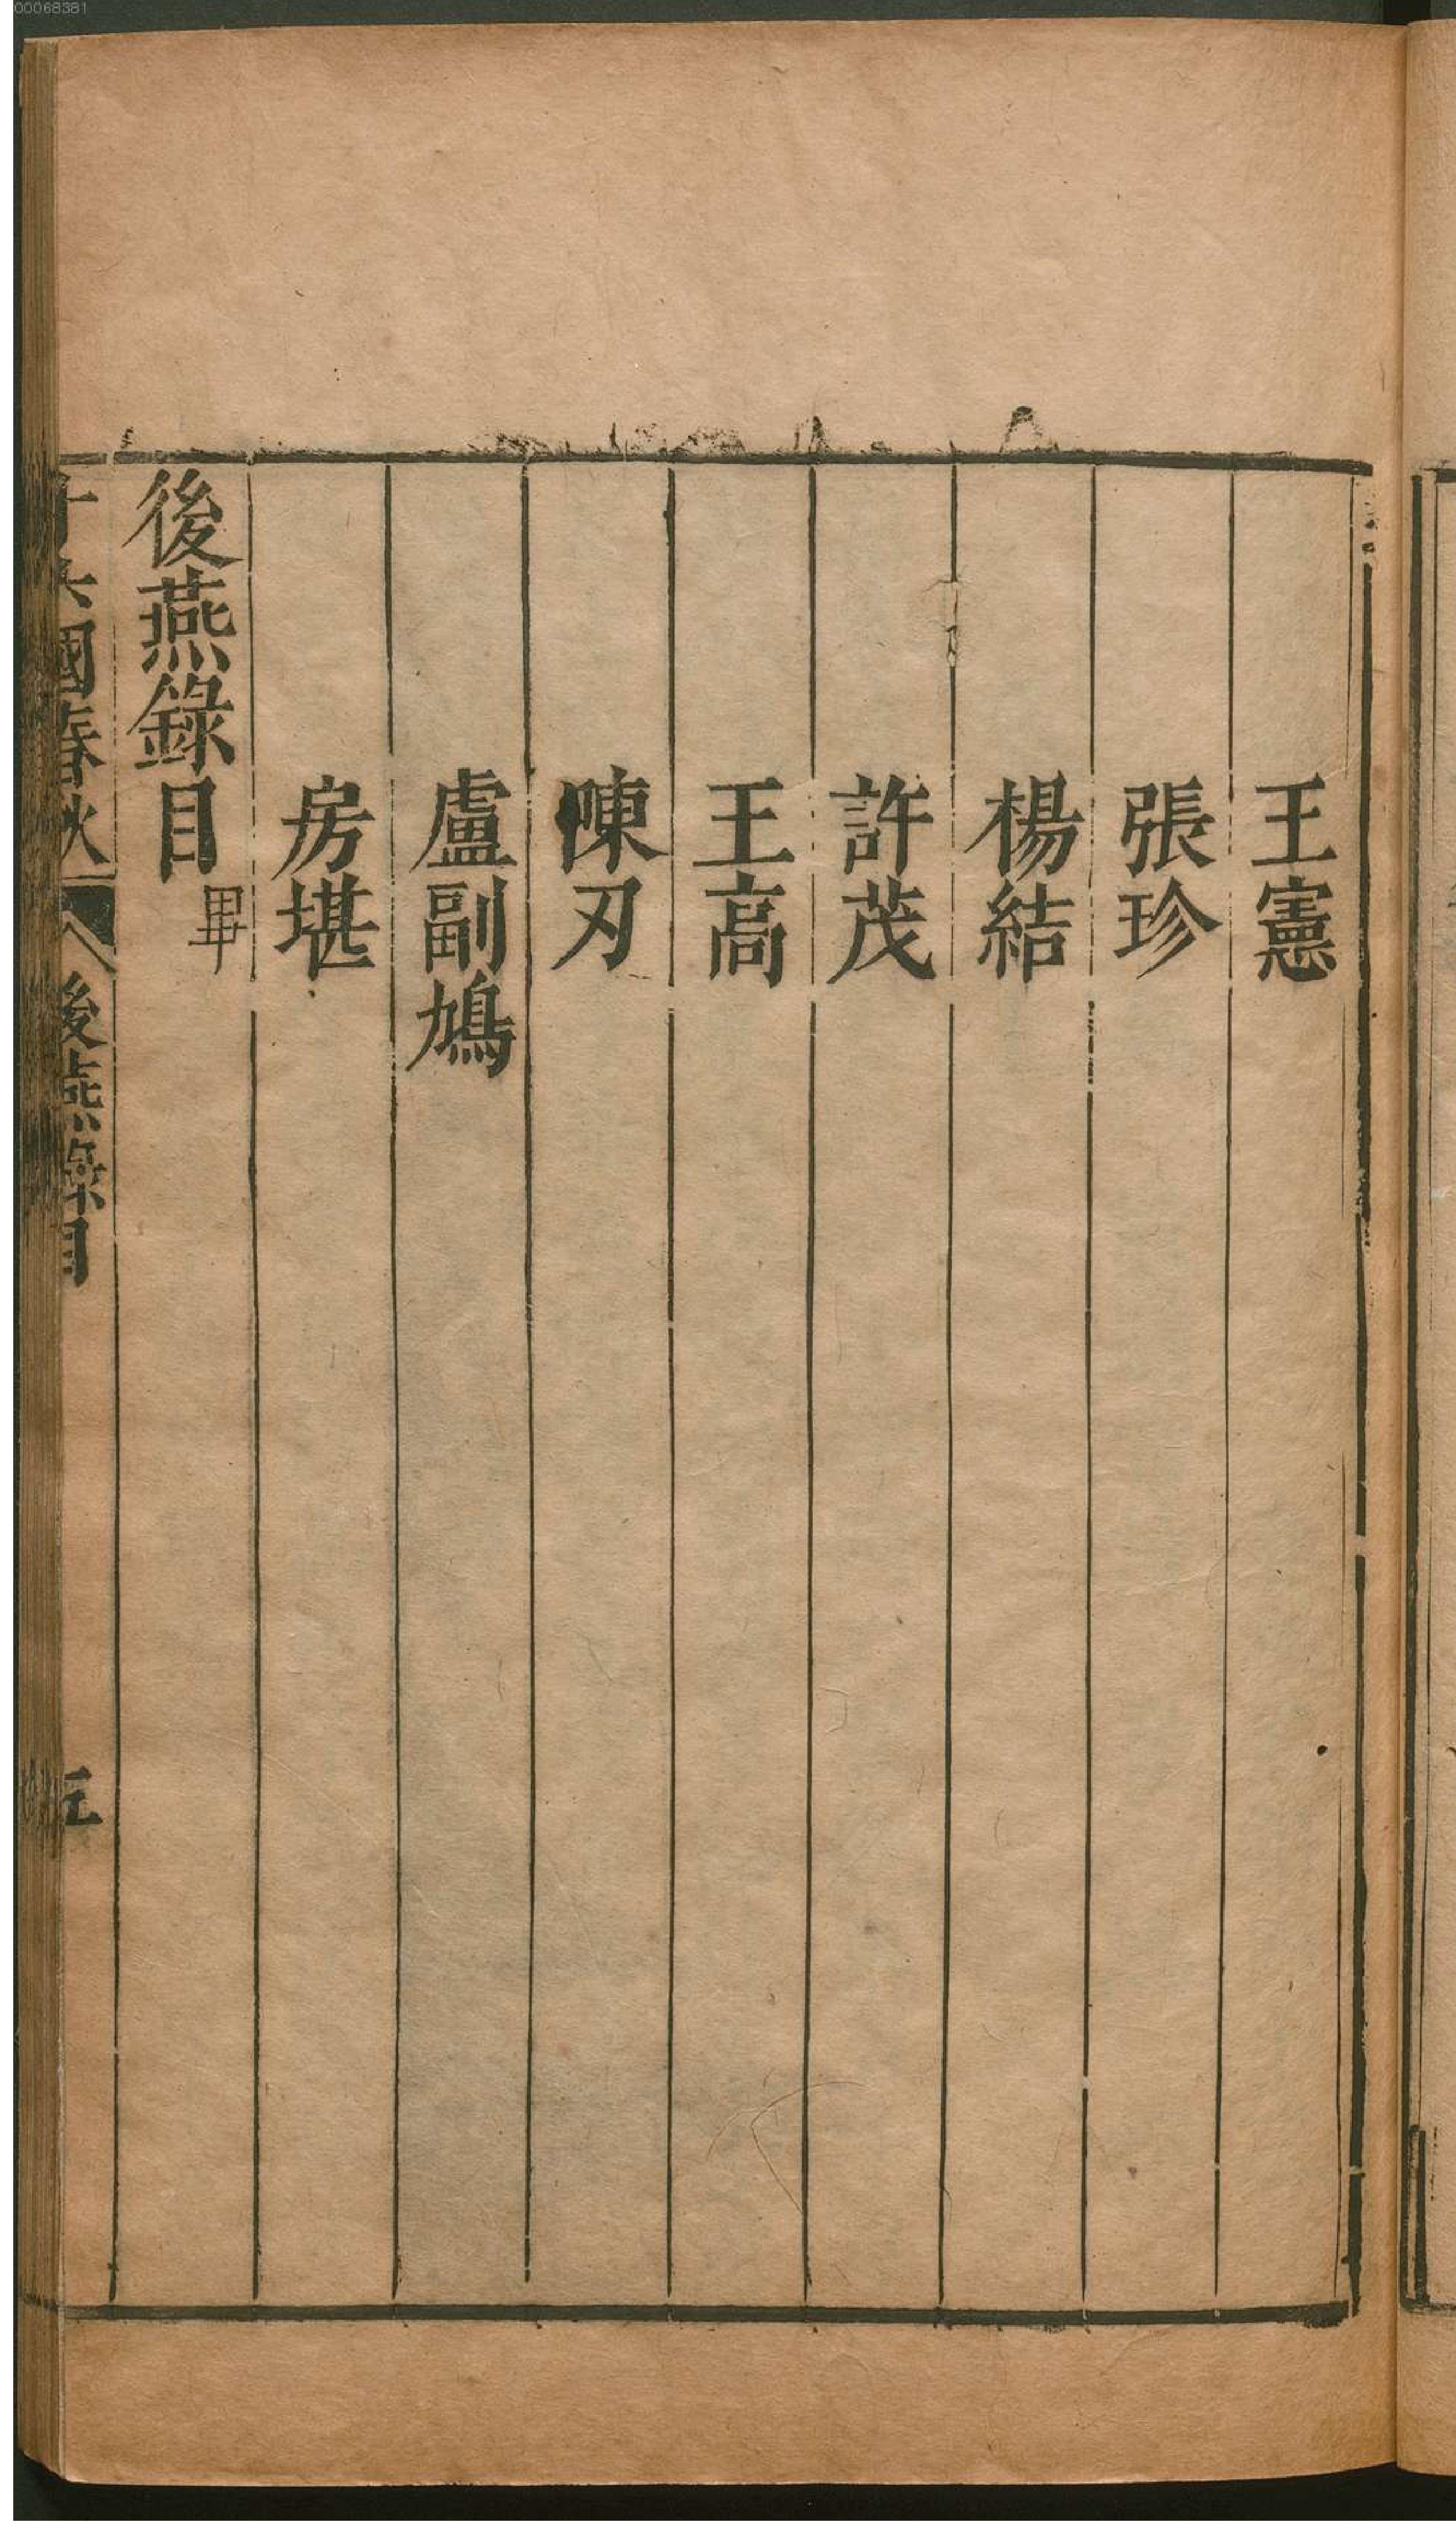 00068381
王憲
張珍
楊結
許茂
王高
陳刃
盧副鳩
房堪
後燕錄目畢
十六國春秋
後燕錄目